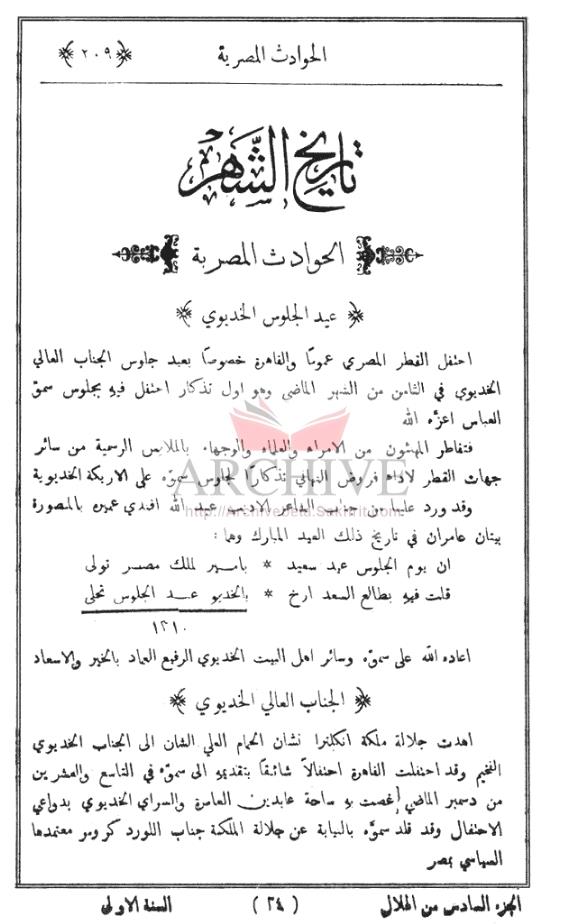 الحوادث المصرية ﴿٢٠٩﴾
تاريخ الشهر
الحوادث المصرية
﴿ عيد الجلوس الخديوي ﴾
احتفل القطر المصري عموماً والقاهرة خصوصاً بعيد جلوس الجناب العالي
الخديوي في الثامن من الشهر الماضي وهو اول تذكار احتفل فيه بجلوس سموّ
العباس اعزّه الله
فتقاطر المهنئون من الامراء والعلماء والوجهاء بالملابس الرسمية من سائر
جهات القطر لاداء فروض التهاني تذكاراً لجلوس سموّه على الاريكة الخديوية
وقد ورد علينا من جناب الشاعر الاديب عبد الله افندي عميره بالمنصورة
بيتان عامران في تاريخ ذلك العيد المبارك وهما :
ان يوم الجلوس عيد سعيد * بامير لملك مصر تولى
قلت فيه بطالع السعد ارخ * بالخديو عيد الجلوس تحلى
١٣١٠
اعاده الله على سموّه وسائر اهل البيت الخديوي الرفيع العماد بالخير والاسعاد
﴿ الجناب العالي الخديوي ﴾
اهدت جلالة ملكة انكلترا نشان الحمام العلي الشان الى الجناب الخديوي
الفخيم وقد احتفلت القاهرة احتفالاً شائقاً بتقديمه الى سموّه في التاسع والعشرين
من دسمبر الماضي اغصت به ساحة عابدين العامرة والسراي الخديوي بدواعي
الاحتفال وقد قلد سموّه بالنيابة عن جلالة الملكة جناب اللورد كرومر معتمدها
السياسي بمصر
ARCHIVE
http://Archivebeta.Sakhrit.com
الجزء السادس من الهلال (٢٤) السنة الاولى